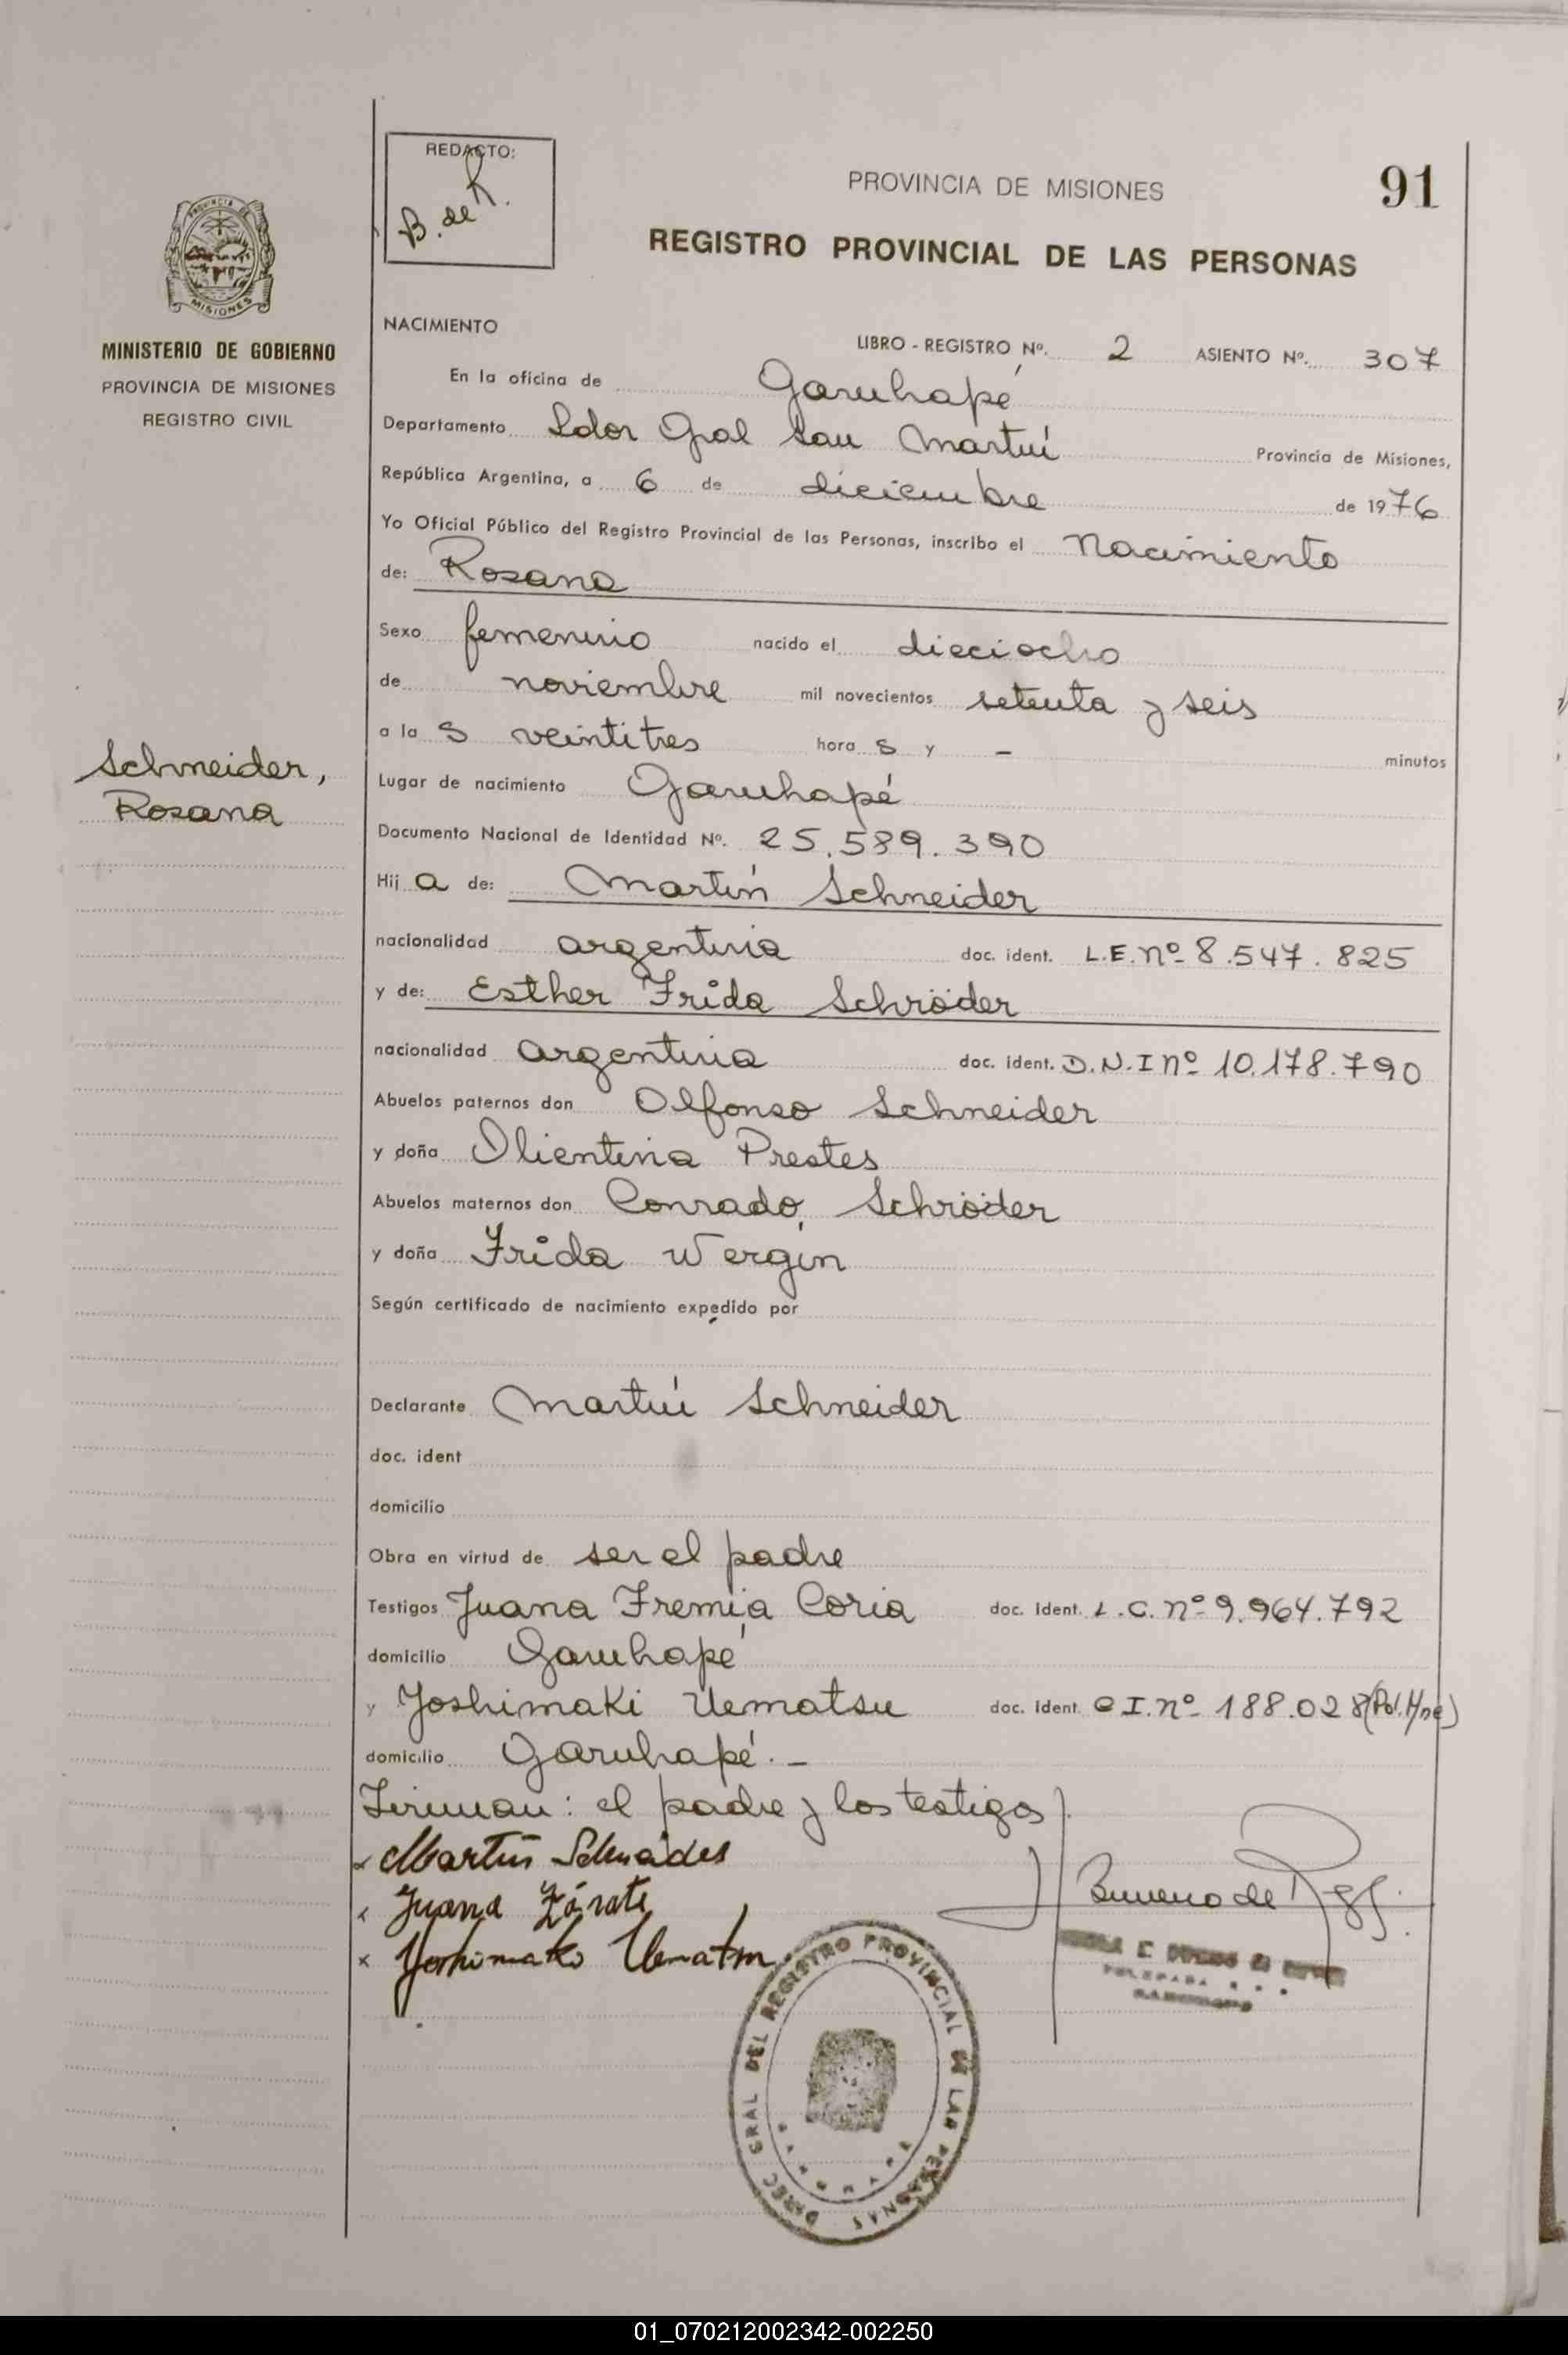 REDACTO:
B. de R.
PROVINCIA DE MISIONES
91
REGISTRO PROVINCIAL DE LAS PERSONAS
MISIONES
MINISTERIO DE GOBIERNO
PROVINCIA DE MISIONES
REGISTRO CIVIL
Schneider,
Rosana
NACIMIENTO
LIBRO - REGISTRO Nº. 2 ASIENTO Nº. 307
En la oficina de Garuhapé
Departamento Ldor Gral San Martín Provincia de Misiones,
República Argentina, a 6 de diciembre de 1976
Yo Oficial Público del Registro Provincial de las Personas, inscribo el Nacimiento
de: Rosana
Sexo femenino nacido el dieciocho
de noviembre mil novecientos setenta y seis
a la s veintitres hora s y - minutos
Lugar de nacimiento Garuhapé
Documento Nacional de Identidad Nº. 25.589.390
Hij a de: Martín Schneider
nacionalidad argentina doc. ident. L.E. nº 8.547.825
y de: Esther Frida Schröder
nacionalidad argentina doc. ident. D.N.I nº 10.178.790
Abuelos paternos don Alfonso Schneider
y doña Olientina Prestes
Abuelos maternos don Conrado Schröder
y doña Frida Wergin
Según certificado de nacimiento expedido por
Declarante Martín Schneider
doc. ident
domicilio
Obra en virtud de ser el padre
Testigos Juana Fremia Coria doc. ident. L.C. nº 9.964.792
domicilio Garuhapé
y Yoshimaki Uematsu doc. ident. C I. nº 188.028 (Pol. Mnes)
domicilio Garuhapé. -
Firman: el padre y los testigos
x Martín Schneider
x Juana Zárate
x Yoshimaki Uematsu
DIREC. GRAL DEL REGISTRO PROVINCIAL DE LAS PERSONAS
01_070212002342-002250